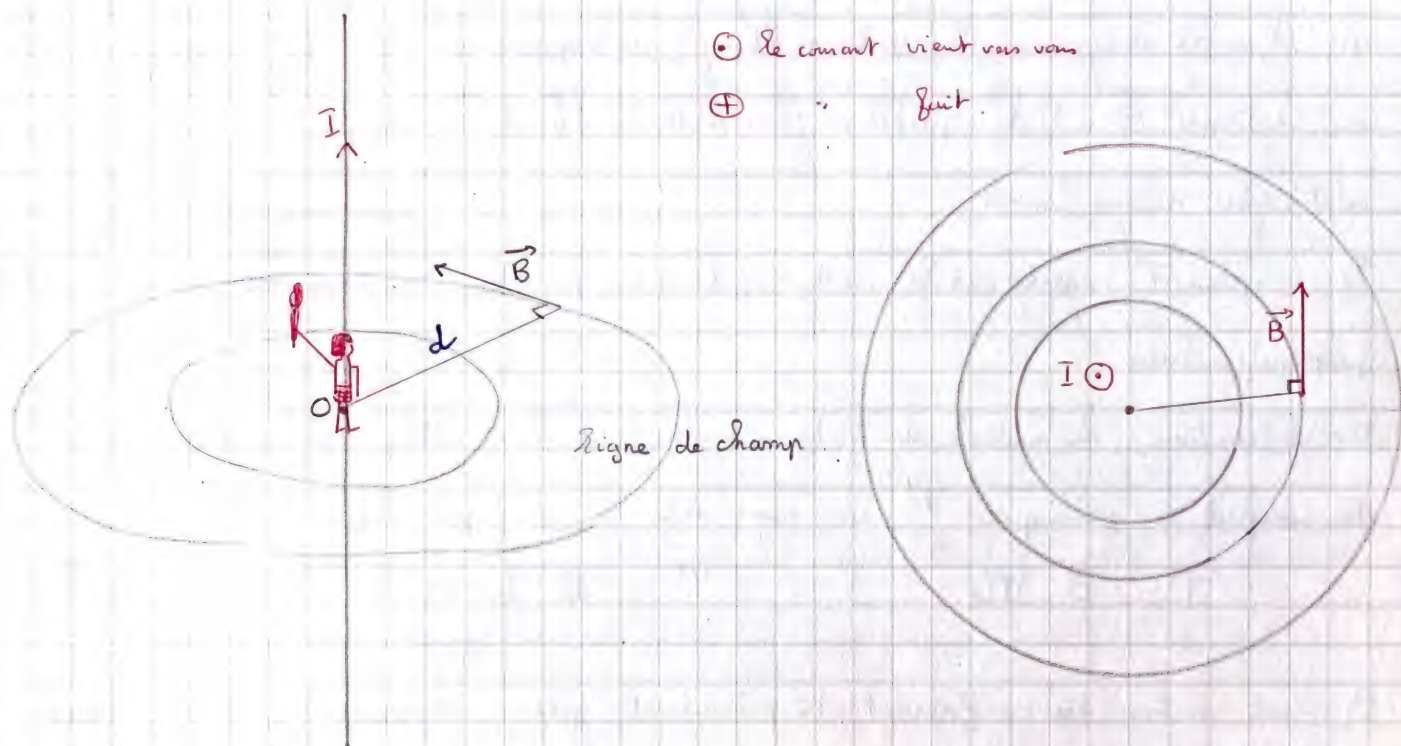 ⊙ Le courant vient vers vous
⊕ " fuit.
I
B
d
O
Ligne de champ
I ⊙
B